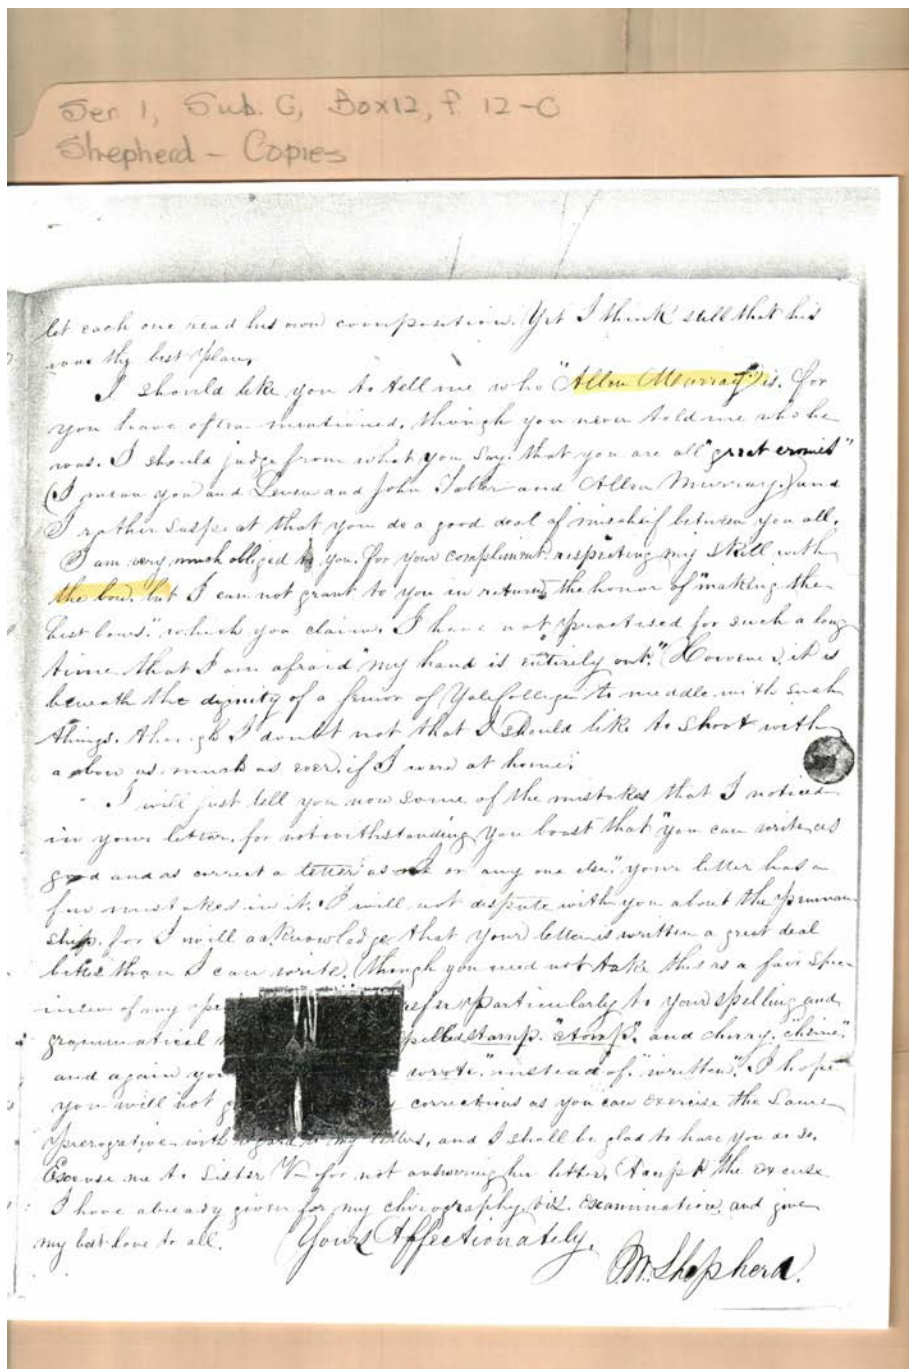 Ser 1, Sub. G, Box 12, f. 12-C
Shepherd - Copies
let each one read his own composition. Yet I think still that his
was the best plan.
I should like you to tell me who "Allen Murray" is. for
you have often mentioned, though you never told me who he
was. I should judge from what you say, that you are all "great cronies"
(I mean you and and John and Allen Murray.) and
I rather suspect that you do a good deal of mischief between you all.
I am very much obliged to you. for your compliment respecting my skill with
the bow. but I can not grant to you in return, the honor of "making the
best bows." which you claim. I have not practised for such a long
time that I am afraid "my hand is entirely out." However, it is
beneath the dignity of a Junior of Yale College to meddle with such
things. though I doubt not that I should like to shoot with
a bow as much as ever, if I were at home.
I will just tell you now some of the mistakes that I noticed
in your letter. for notwithstanding you boast that "you can write as
good and as correct a letter as or any one else," your letter has a
few mistakes in it. I will not dispute with you about the penman
ship. for I will acknowledge that your letter is written a great deal
better than I can write. (though you need not take this as a fair spec-
imen of my refer particularly to your spelling and
grammatical spelled stamp. "stomp", and cherry.
and again you "wrote." instead of "written". I hope
you will not corrections as you can exercise the same
prerogative with regard to my letters, and I shall be glad to have you do so.
Excuse me to Sister V— for not answering her letter. the excuse
I have already given for my chirography, viz. examination, and give
my best love to all. Yours Affectionately.
M. Shepherd.